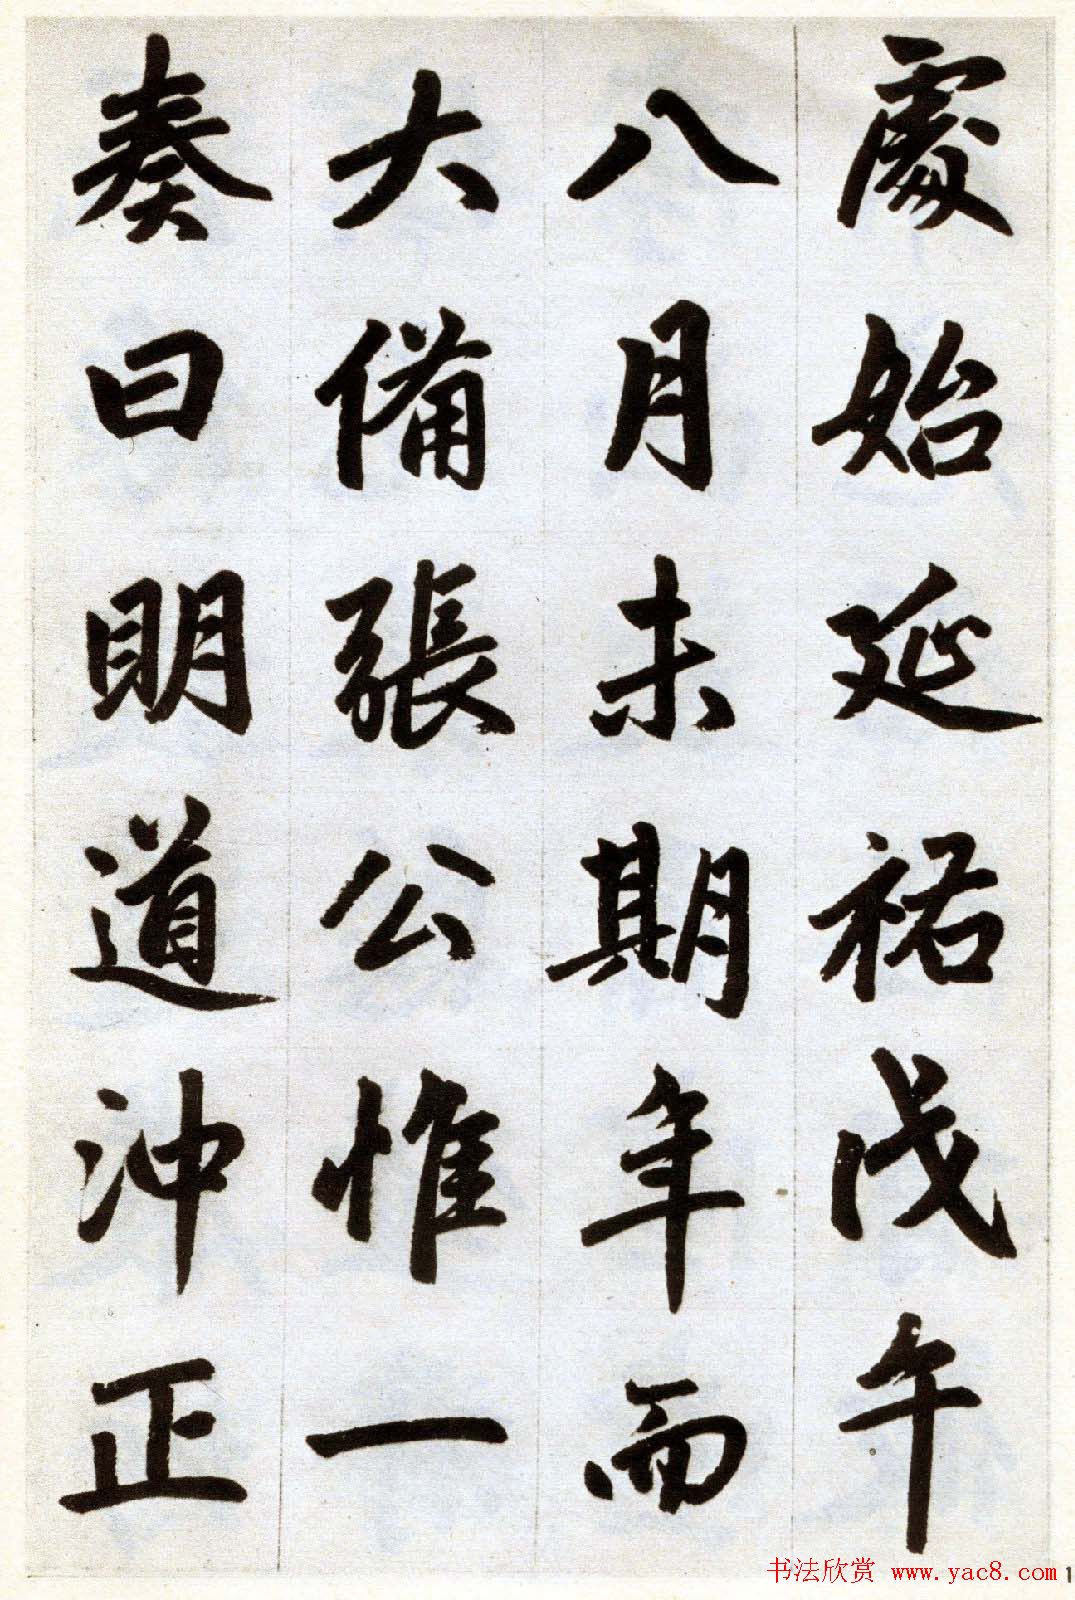 處始延祐戊午
八月未期年而
大備張公惟一
奏曰明道沖正
书法欣赏 www.yac8.com
1